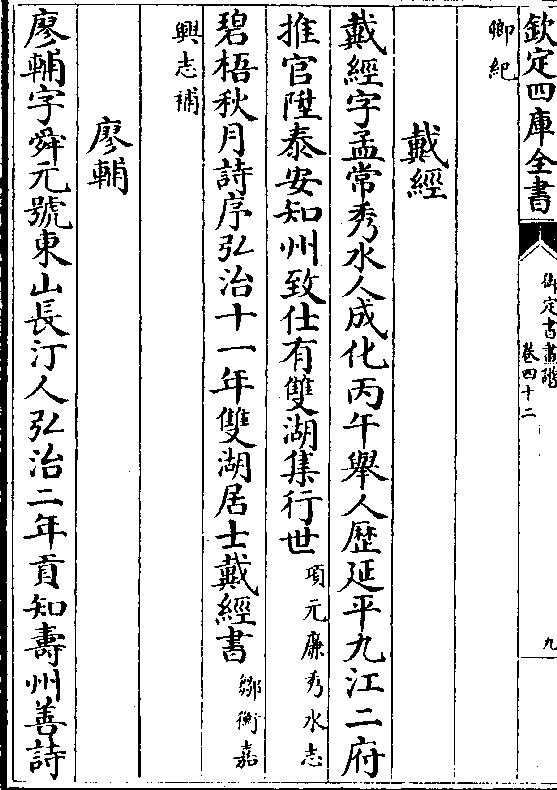 欽定四庫全書
御定書畫譜
卷四十二
九
卿紀
戴經
戴經字孟常秀水人成化丙午舉人歷延平九江二府
推官陞泰安知州致仕有雙湖集行世項元廉秀水志
碧梧秋月詩序弘治十一年雙湖居士戴經書鄒衡嘉
興志補
廖輔
廖輔字舜元號東山長汀人弘治二年貢知壽州善詩